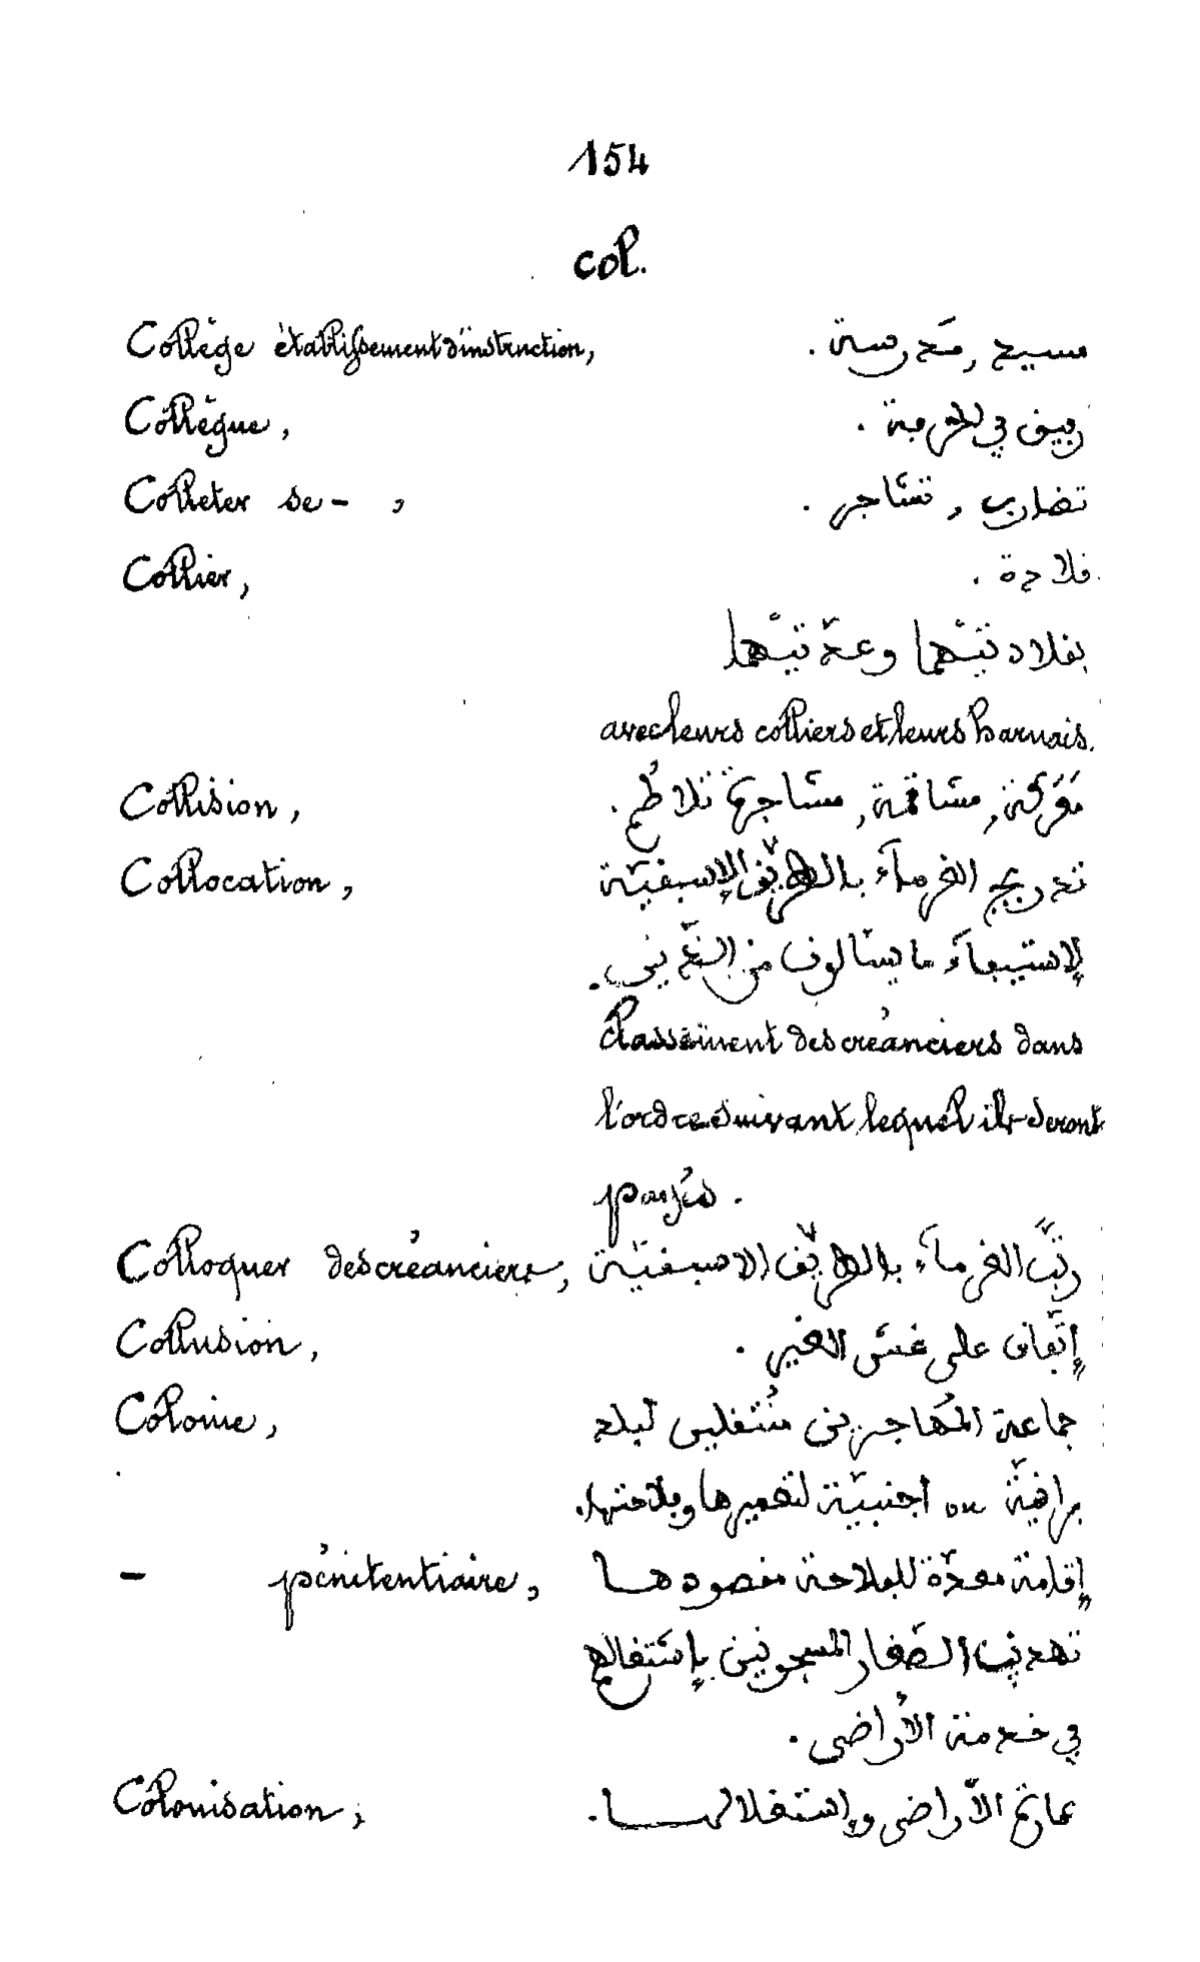 154
col.
Collège établissement d'instruction, مسيد , مَدرسة .
Collègue, رفيق في الحرفة .
Colleter se - , تضارب , تشّاجر .
Collier, قلادة .
بقلادتيْهما وعدّتيْهما
avec leurs colliers et leurs harnais.
Collision, مَعَركة, مشاقمة, مشاجرة تلاطُم .
Collocation, تدريج الغرمآء بالطريق الإسبقيّة
لإستيفآء ما يسالون من المَدِينِ .
Classement des créanciers dans
l'ordre suivant lequel ils seront
payés .
Colloquer des créanciers, رتّبَ الغرمآء بالطريق الاسبقيّة
Collusion, إتّفاق على غشّ الغير .
Colonie, جماعة المُهاجرين مُنتقلين لبلد
برانيّة ou اجنبيّة لتعميرها وفلاحتها .
- pénitentiaire, إقامة معدّة للفلاحة مقصودها
تهذيب الصّغار المسجونين بإشتغالهم
في خدمة الأراضى .
Colonisation, عمارة الأراضى وإستغلالها .